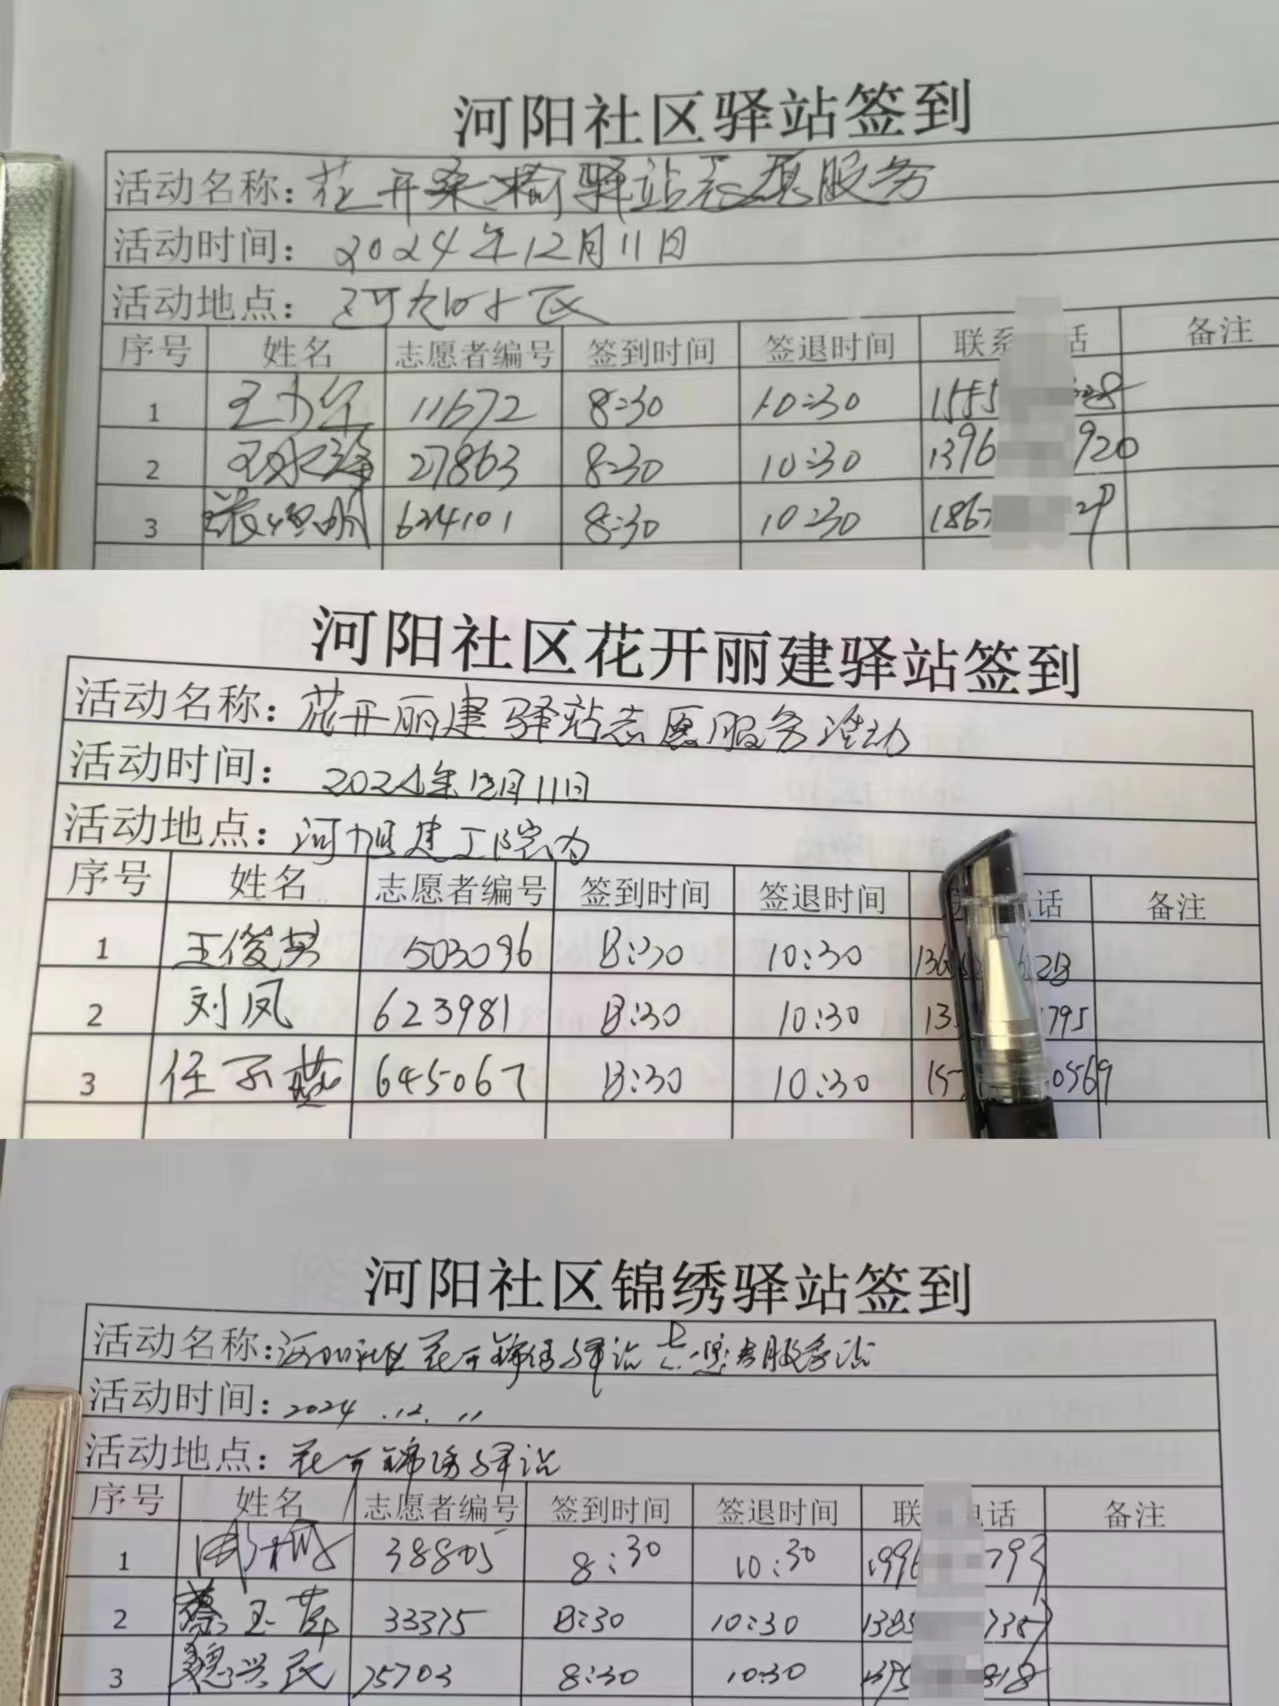 河阳社区驿站签到
活动名称：花开桑榆驿站志愿服务
活动时间：2024年12月11日
活动地点：
序号 姓名 志愿者编号 签到时间 签退时间 联系 话 备注
1 11672 8:30 10:30 155
2 27863 8:30 10:30 1396 920
3 624101 8:30 10:30 186
河阳社区花开丽建驿站签到
活动名称：花开丽建驿站志愿服务活动
活动时间：2024年12月11日
活动地点：河旭建工院内
序号 姓名 志愿者编号 签到时间 签退时间 话 备注
1 王俊英 503096 8:30 10:30 136 28
2 刘凤 623981 8:30 10:30 13 795
3 任 燕 645067 8:30 10:30 15 0569
河阳社区锦绣驿站签到
活动名称：河阳社区花开锦绣驿站志愿者服务活
活动时间：2024.12.11
活动地点：花开锦绣驿站
序号 姓名 志愿者编号 签到时间 签退时间 联 电话 备注
1 38805 8:30 10:30 1996 793
2 蔡玉萍 33375 8:30 10:30 1385 735
3 魏兴民 75703 8:30 10:30 1395 818